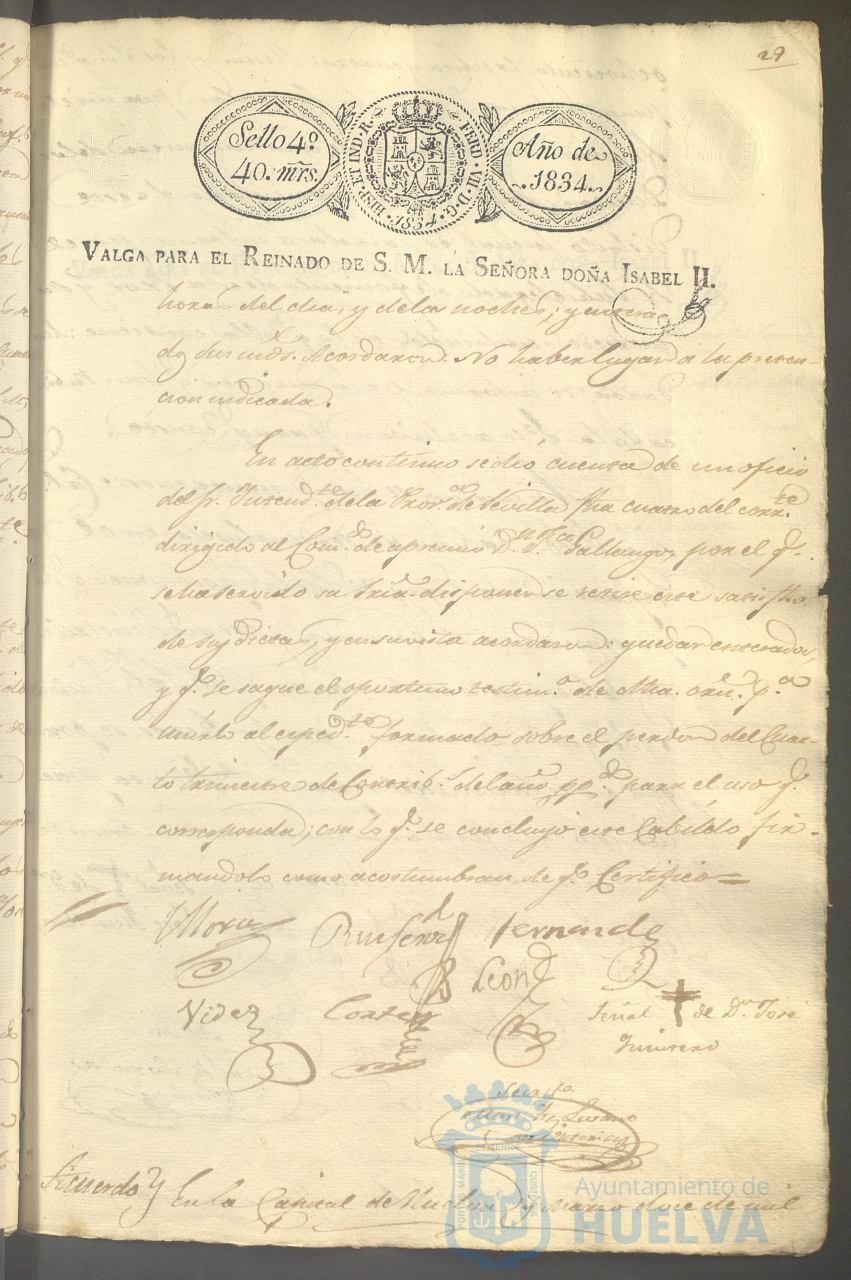 29
Sello 4º
40. mrs.
HISP. ET IND. R. FERD. VII. D. G. 1834.
Año de
1834.
VALGA PARA EL REINADO DE S. M. LA SEÑORA DOÑA ISABEL II.
horas del dia, y de las noches; y
Acordaron. No haber lugar a la preten-
cion indicada.
En acto continuo se dió cuenta de un oficio
del Sr. Intendte. de la Prova. de Sevilla fha cuatro del corrte.
dirigido al Comdo. de apremio Dn. Gallango, por el q.
se ha servido su Sria. disponer se retire este satisfho.
de sus dietas, y en su vista acordaron: quedar enterados,
y q. se saque el oportuno testimo. de dha. orn. pa.
unirlo al expedte. formado sobre el perdon del Cuar-
to trimestre de Contribs. del año pp.do para el uso q.
corresponda; con lo q. se concluyó este Cabildo fir-
mandolo como acostumbran, de q. Certifico =
Mora Fernandez
Leon
Videz Cortes Señal de Dn. José
Quintero
Secreto.
Lozano
Acuerdo En la Capital de Huelva y Marzo doce de mil
Ayuntamiento de
HUELVA